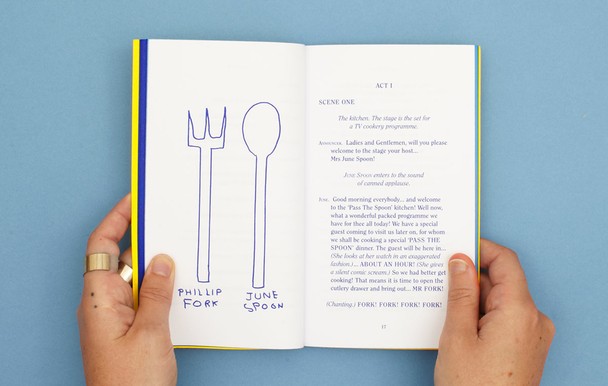 PHILLIP
FORK
JUNE
SPOON
ACT I
SCENE ONE
The kitchen. The stage is the set for
a TV cookery programme.
Announcer. Ladies and Gentlemen, will you please
welcome to the stage your host...
Mrs June Spoon!
June Spoon enters to the sound
of canned applause.
June. Good morning everybody... and welcome
to the 'Pass The Spoon' kitchen! Well now,
what a wonderful packed programme we
have for thee all today! We have a special
guest coming to visit us later on, for whom
we shall be cooking a special 'PASS THE
SPOON' dinner. The guest will be here in...
(She looks at her watch in an exaggerated
fashion.)... ABOUT AN HOUR! (She gives
a silent comic scream.) So we had better get
cooking! That means it is time to open the
cutlery drawer and bring out... MR FORK!
(Chanting.) FORK! FORK! FORK! FORK!